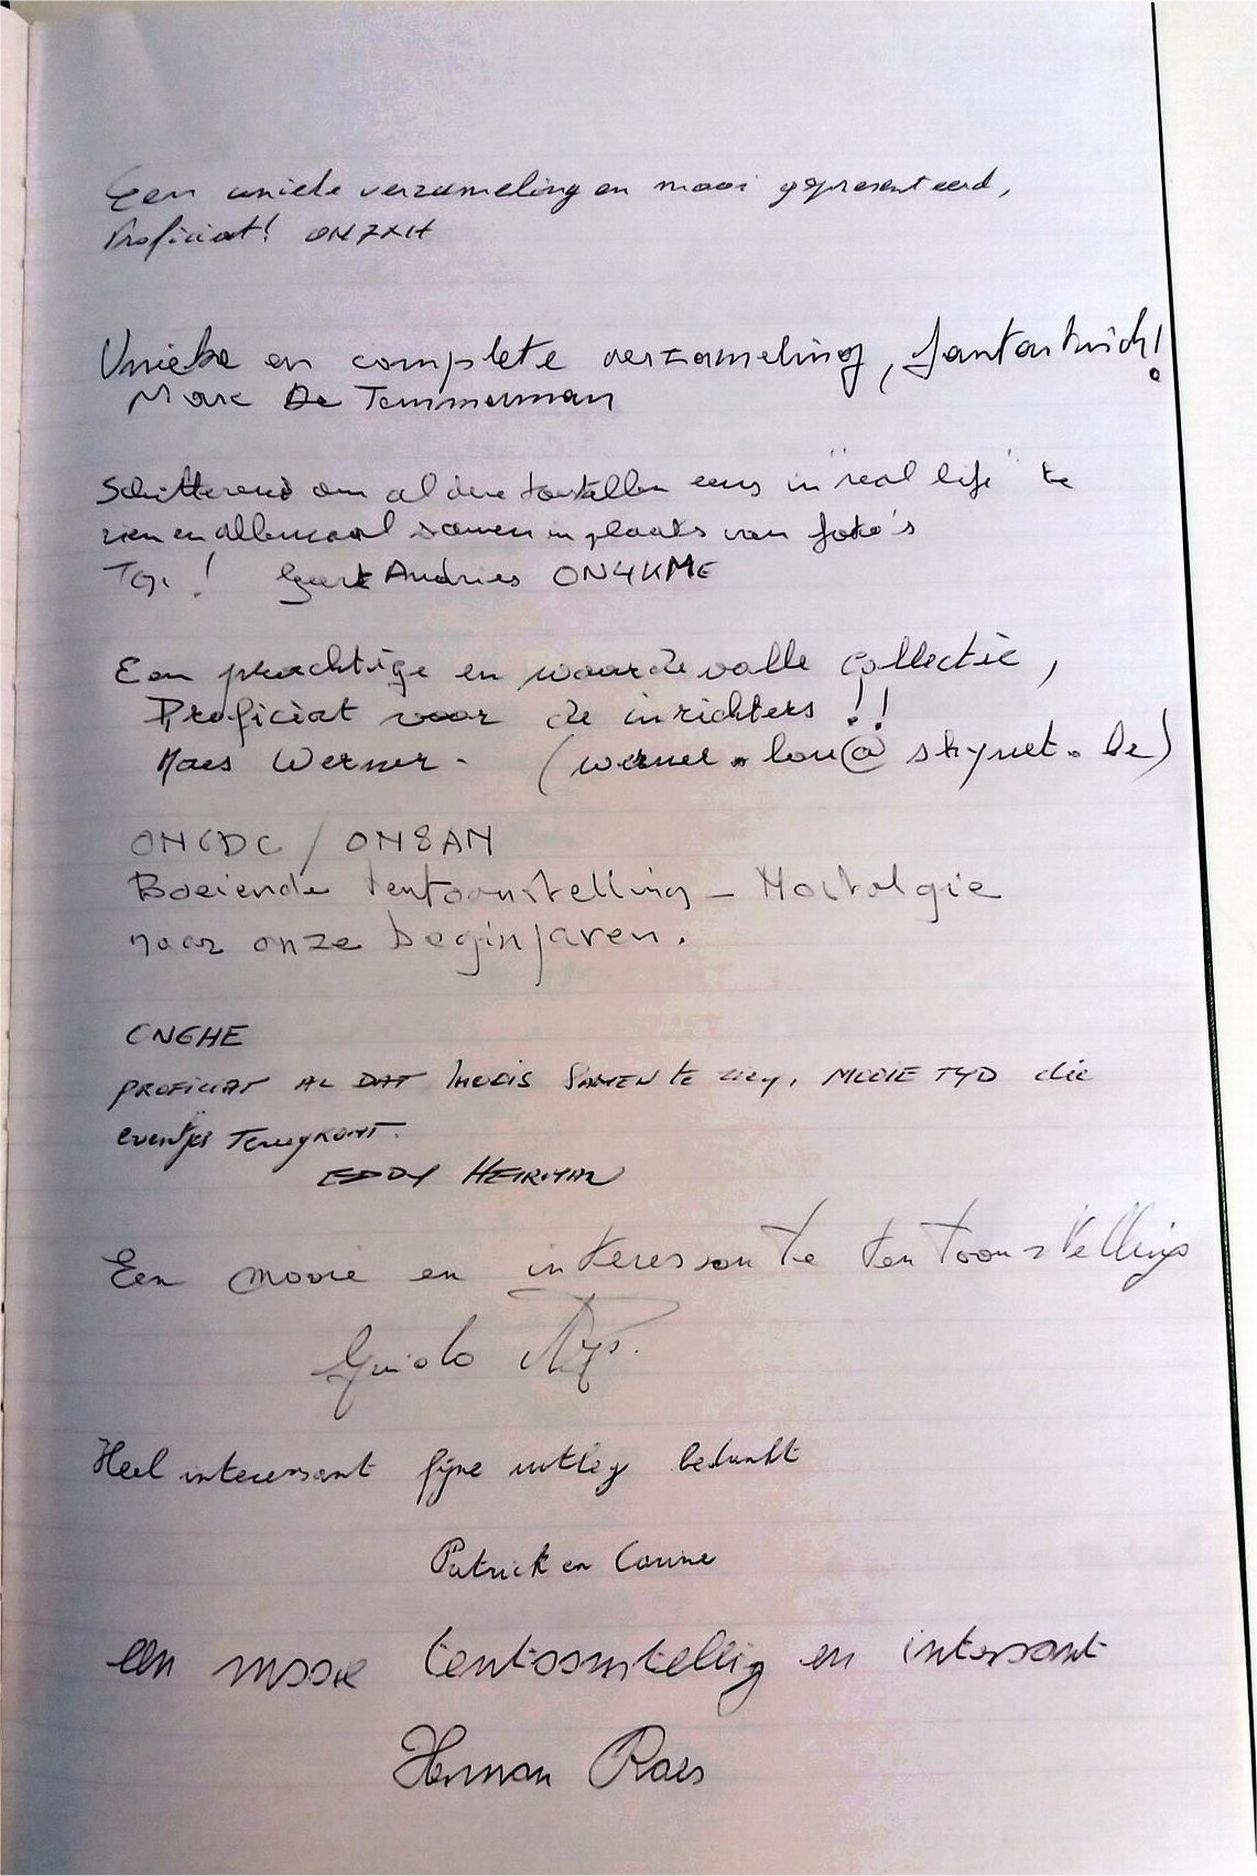 Een unieke verzameling en mooi gepresenteerd,
Proficiat! ON7XH
Unieke en complete verzameling, fantastisch!
Marc De Temmerman
Schitterend om al deze toestellen eens in "real life" te
zien en allemaal samen in plaats van foto's
Tof! Geert Andries ON4KME
Een prachtige en waardevolle collectie,
Proficiat voor de inrichters !!
Maes Werner. (werner.lou@skynet.be)
ON6DC / ON8AN
Boeiende tentoonstelling - Nostalgie
naar onze beginjaren.
ON6HE
PROFICIAT AL DAT MOOIS SAMEN te zien, MOOIE TYD die
eventjes TerugKOMT.
EDDY HEIRMAN
Een mooie en interessante tentoonstelling
Guido
Heel interessant fijne uitleg bedankt
Patrick en Carine
een mooie tentoonstellig en intersant
Herman Raes